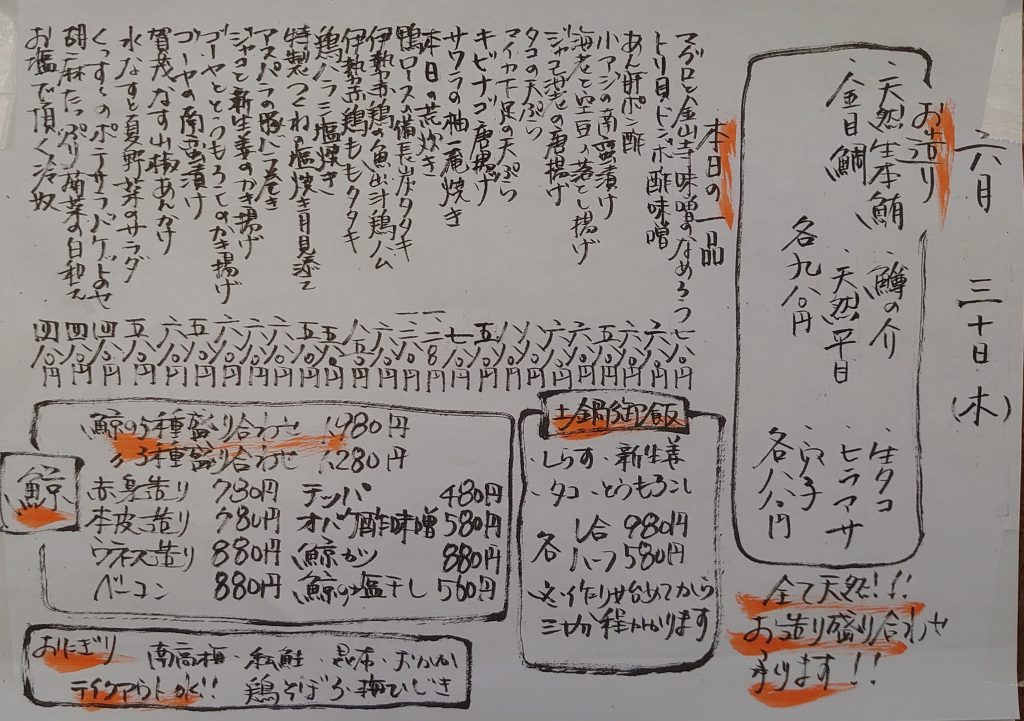 六月 三十日(木)
お造り
・天然生本鮪 ・鱒の介 ・生タコ
・金目鯛 ・天然平目 ・ヒラマサ
・穴子
各九八〇円 各八八〇円
全て天然!!
お造り盛り合わせ
承ります!!
本日の一品
マグロと金山寺味噌のなめろう 七八〇円
トリ貝ドンボ酢味噌 六八〇円
あん肝ポン酢 六八〇円
小アジの南蛮漬け 六八〇円
海老と空豆の落とし揚げ
ジャコ海老の唐揚げ
タコの天ぷら
マイカ下足の天ぷら
キビナゴ唐揚げ 五八〇円
サワラの柚庵焼き 七八〇円
本日の荒炊き
鴨ロースの備長炭タタキ
伊勢赤鶏の魚出汁鶏ハム
伊勢赤鶏ももタタキ
鶏ハラミ塩焼き
特製つくね塩焼き月見添え
アスパラの豚バラ巻き
ジャコと新生姜のかき揚げ
ゴーヤととうもろこしのかき揚げ
ゴーヤの南蛮漬け 五八〇円
賀茂なす山椒あんかけ 六八〇円
水なすと夏野菜のサラダ 五八〇円
くっすくのポテサラバゲットのせ 四八〇円
胡麻たっぷり菊菜の白和え 四八〇円
お塩で頂く冷奴 四八〇円
土鍋御飯
・しらす・新生姜
・タコ・とうもろこし
各 一合 980円
ハーフ 580円
※作り始めてから
三十分程かかります
鯨
鯨の5種盛り合わせ 1,980円
〃3種盛り合わせ 1,280円
赤身造り 780円 テッパ 480円
本皮造り 780円 オバケ酢味噌 580円
ウネス造り 880円 鯨カツ 880円
ベーコン 880円 鯨の塩干し 560円
おにぎり 南高梅・紅鮭・昆布・おかか
テイクアウトOK!! 鶏そぼろ・梅ひじき